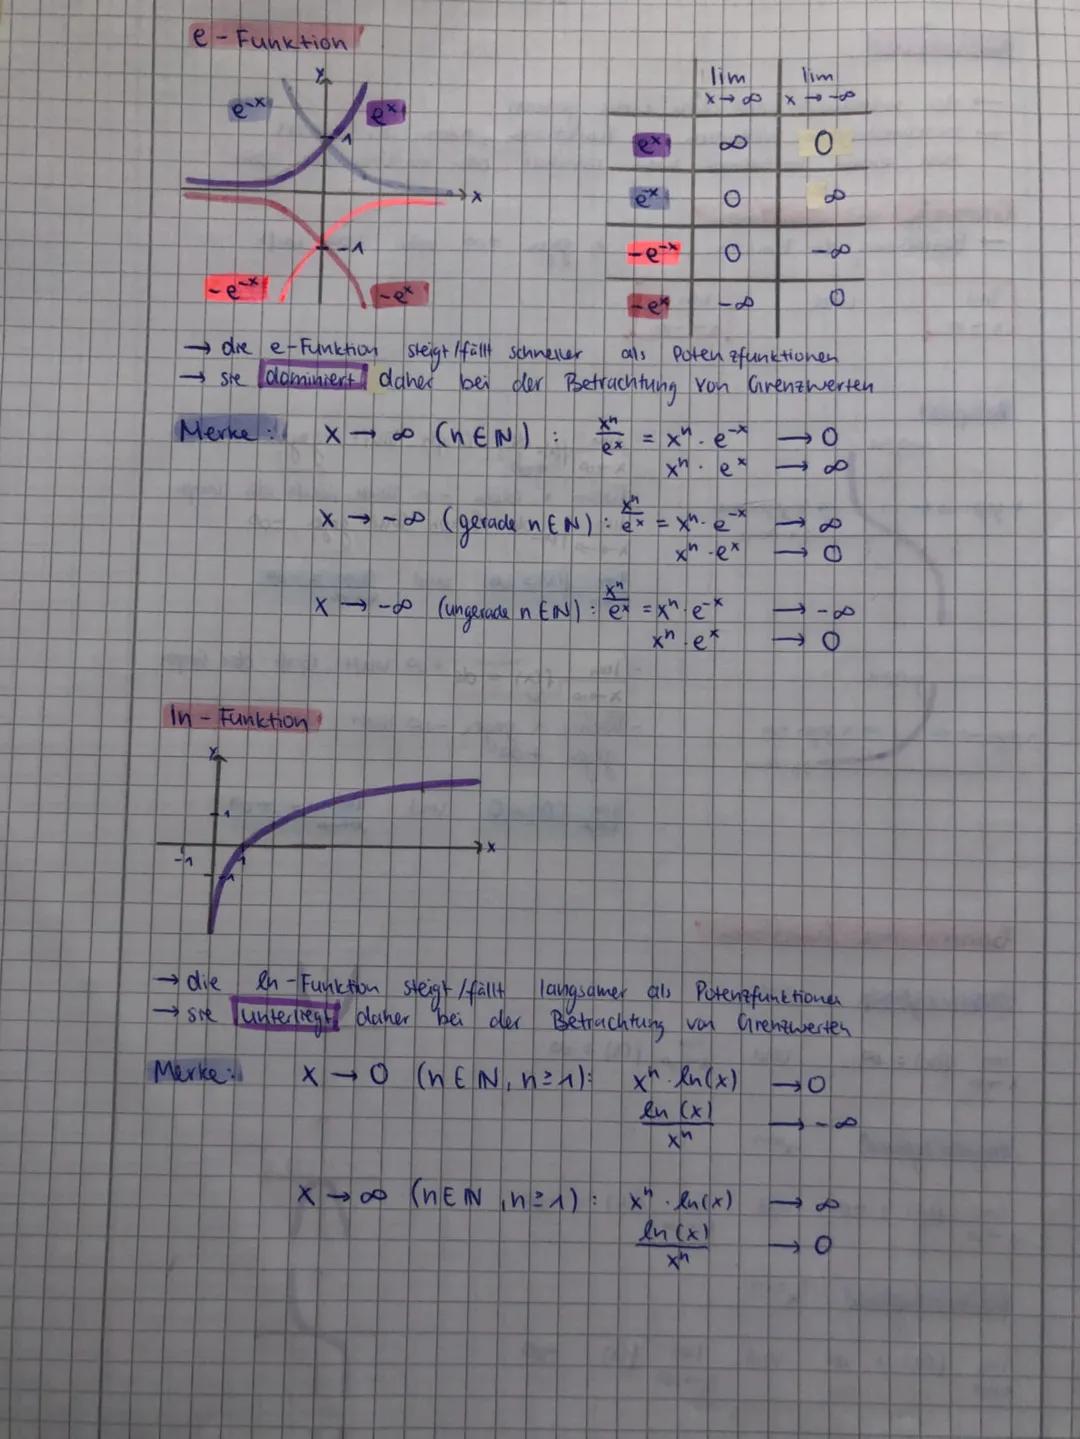 e-Funktion
y
e⁻ˣ
eˣ
1
x
-1
-e⁻ˣ
-eˣ
lim x→∞ lim x→-∞
eˣ ∞ 0
e⁻ˣ 0 ∞
-e⁻ˣ 0 -∞
-eˣ -∞ 0
→ die e-Funktion steigt/fällt schneller als Potenzfunktionen
→ sie dominiert daher bei der Betrachtung von Grenzwerten
Merke: x → ∞ (n ∈ ℕ) : xⁿ/eˣ = xⁿ · e⁻ˣ → 0
xⁿ · eˣ → ∞
x → -∞ (gerade n ∈ ℕ) : xⁿ/eˣ = xⁿ · e⁻ˣ → ∞
xⁿ · eˣ → 0
x → -∞ (ungerade n ∈ ℕ) : xⁿ/eˣ = xⁿ · e⁻ˣ → -∞
xⁿ · eˣ → 0
ln-Funktion
y
1
x
-1 1
-1
→ die ln-Funktion steigt/fällt langsamer als Potenzfunktionen
→ sie unterliegt daher bei der Betrachtung von Grenzwerten
Merke: x → 0 (n ∈ ℕ, n ≥ 1): xⁿ · ln(x) → 0
ln(x)/xⁿ → -∞
x → ∞ (n ∈ ℕ, n ≥ 1) : xⁿ · ln(x) → ∞
ln(x)/xⁿ → 0